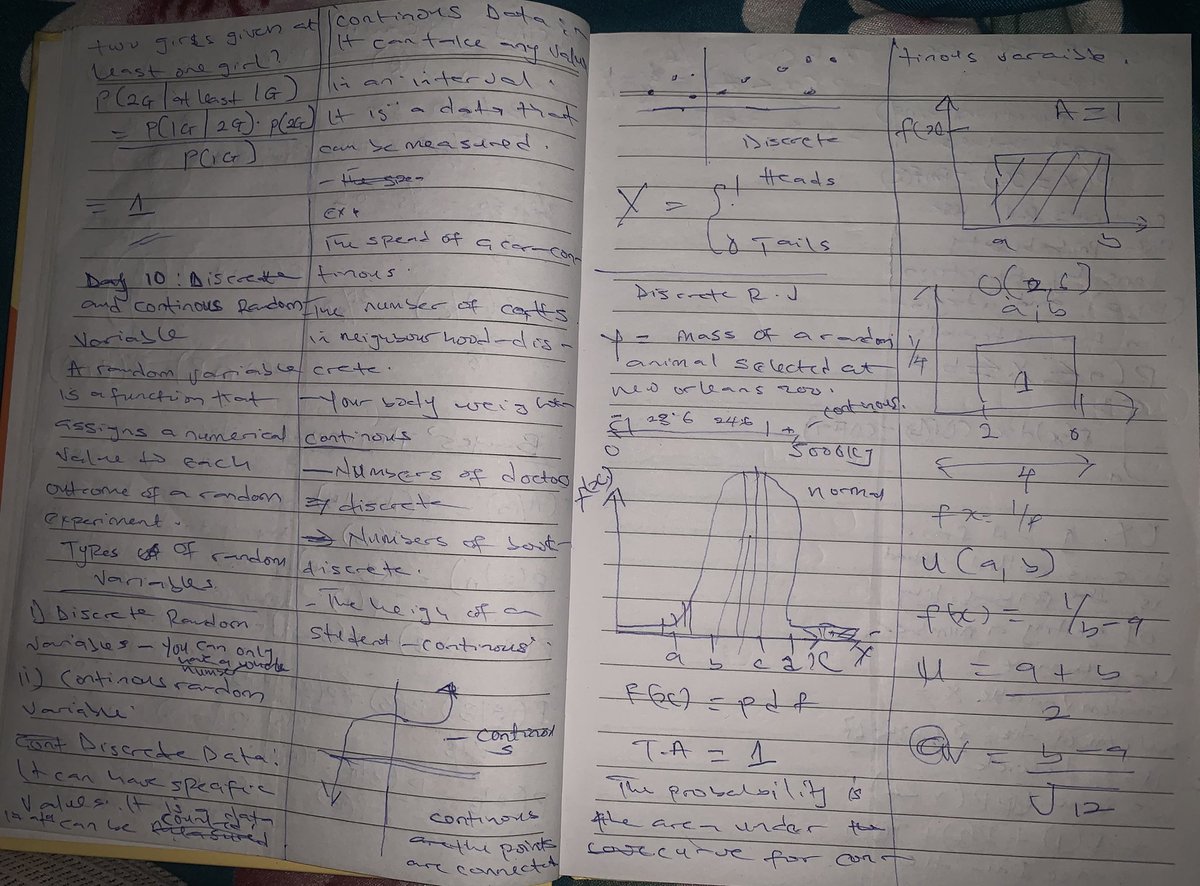 two girls given at
least one girl?
P(2G | at least 1G)
= P(1G | 2G) · P(2G)
P(1G)
= 1
Day 10 : Discrete
and continous Random
Variable
A random variable
is a function that
assigns a numerical
value to each
outcome of a random
experiment.
Types of random
variables.
i) Discrete Random
variables – you can only
have a whole
number
ii) Continous random
variable.
Cont Discrete Data:
It can have specific
values. It is
count data
can be measured
Continous Data:
It can take any value
in an interval.
It is a data that
can be measured.
ex
The speed of a car – con
tinous.
The number of
in neighbour hood – dis –
crete.
– Your body weigh
continous
– Numbers of doctos
discrete
Numbers of
discrete.
– The heigh of an
student – continous
– continou
s
continous
the points
are connected
Discrete
X = { 1 Heads
0 Tails
Discrete R.
Y = mass of a random
animal selected at
new orleans zoo.
continous.
0 5000kg
f(x) normal
a b c d x
f(x) = pdf
T.A = 1
The probability is
the area under the
curve for con –
tinous varaible.
A = 1
f(x)
a b
a, b
1/4
1
2 6
4
U (a, b)
f(x) = 1/b-a
μ = a + b
2
= b – a
√12